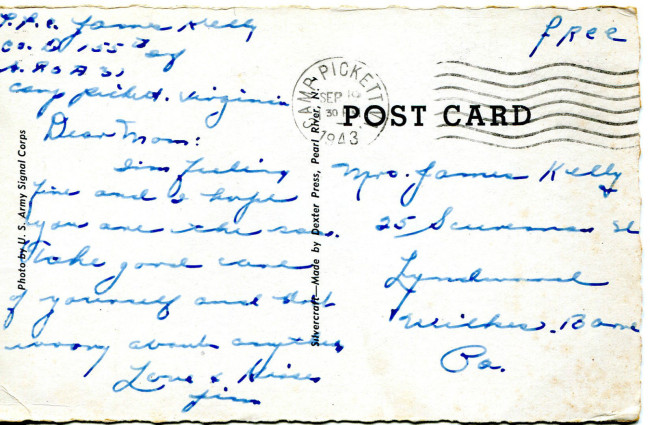 P.F.C. James Kelly
Co. D 155
Camp Pickett. Virginia
Dear Mom:
I'm feeling
fine and I hope
you are the same.
Take good care
of yourself and don't
worry about anything
Love & Kisses
Jim
Photo by U. S. Army Signal Corps
Silvercraft—Made by Dexter Press, Pearl River, N. Y.
free
CAMP PICKETT
SEP
30
1943
POST CARD
Mrs. James Kelly
25
Lyndwood
Wilkes. Barre
Pa.